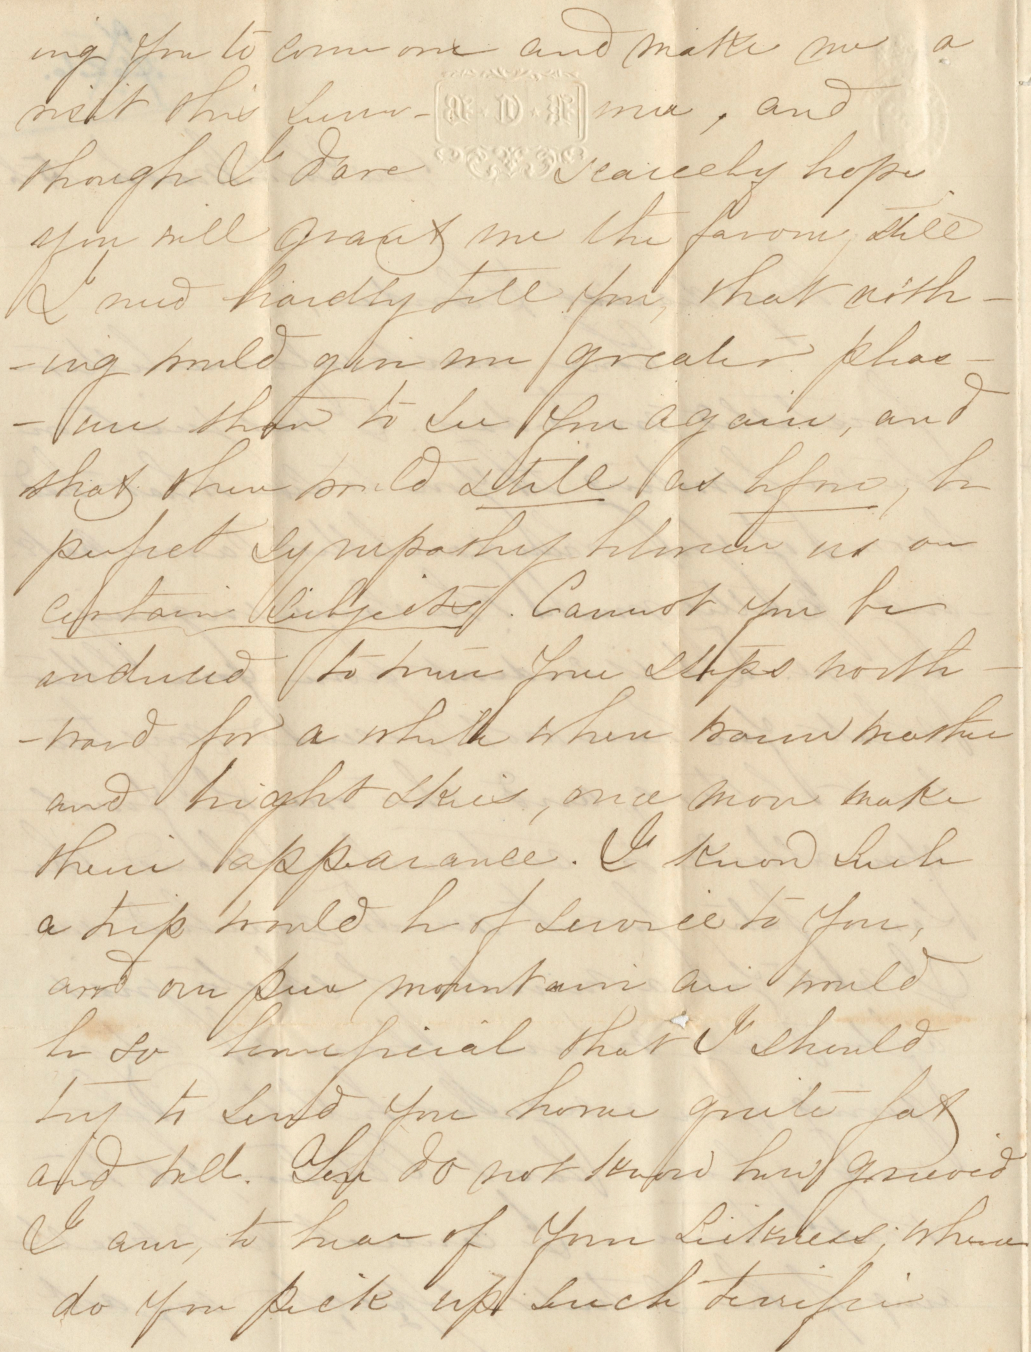 ing you to come on and make me a
visit this sum- mer, and
though I dare scarcely hope
you will grant me the favor, still
I need hardly tell you, that noth-
-ing would give me greater pleas-
-ure than to see you again, and
that there would still as before, be
perfect sympathy between us on
certain subjects. Cannot you be
induced to turn your steps north-
-ward for a while when warm weather
and bright skies, once more make
their appearance. I know such
a trip would be of service to you,
and our pure mountain air would
be so beneficial that I should
try to send you home quite fat
and well. You do not know how grieved
I am, to hear of your sickness; where
do you pick up such terrific